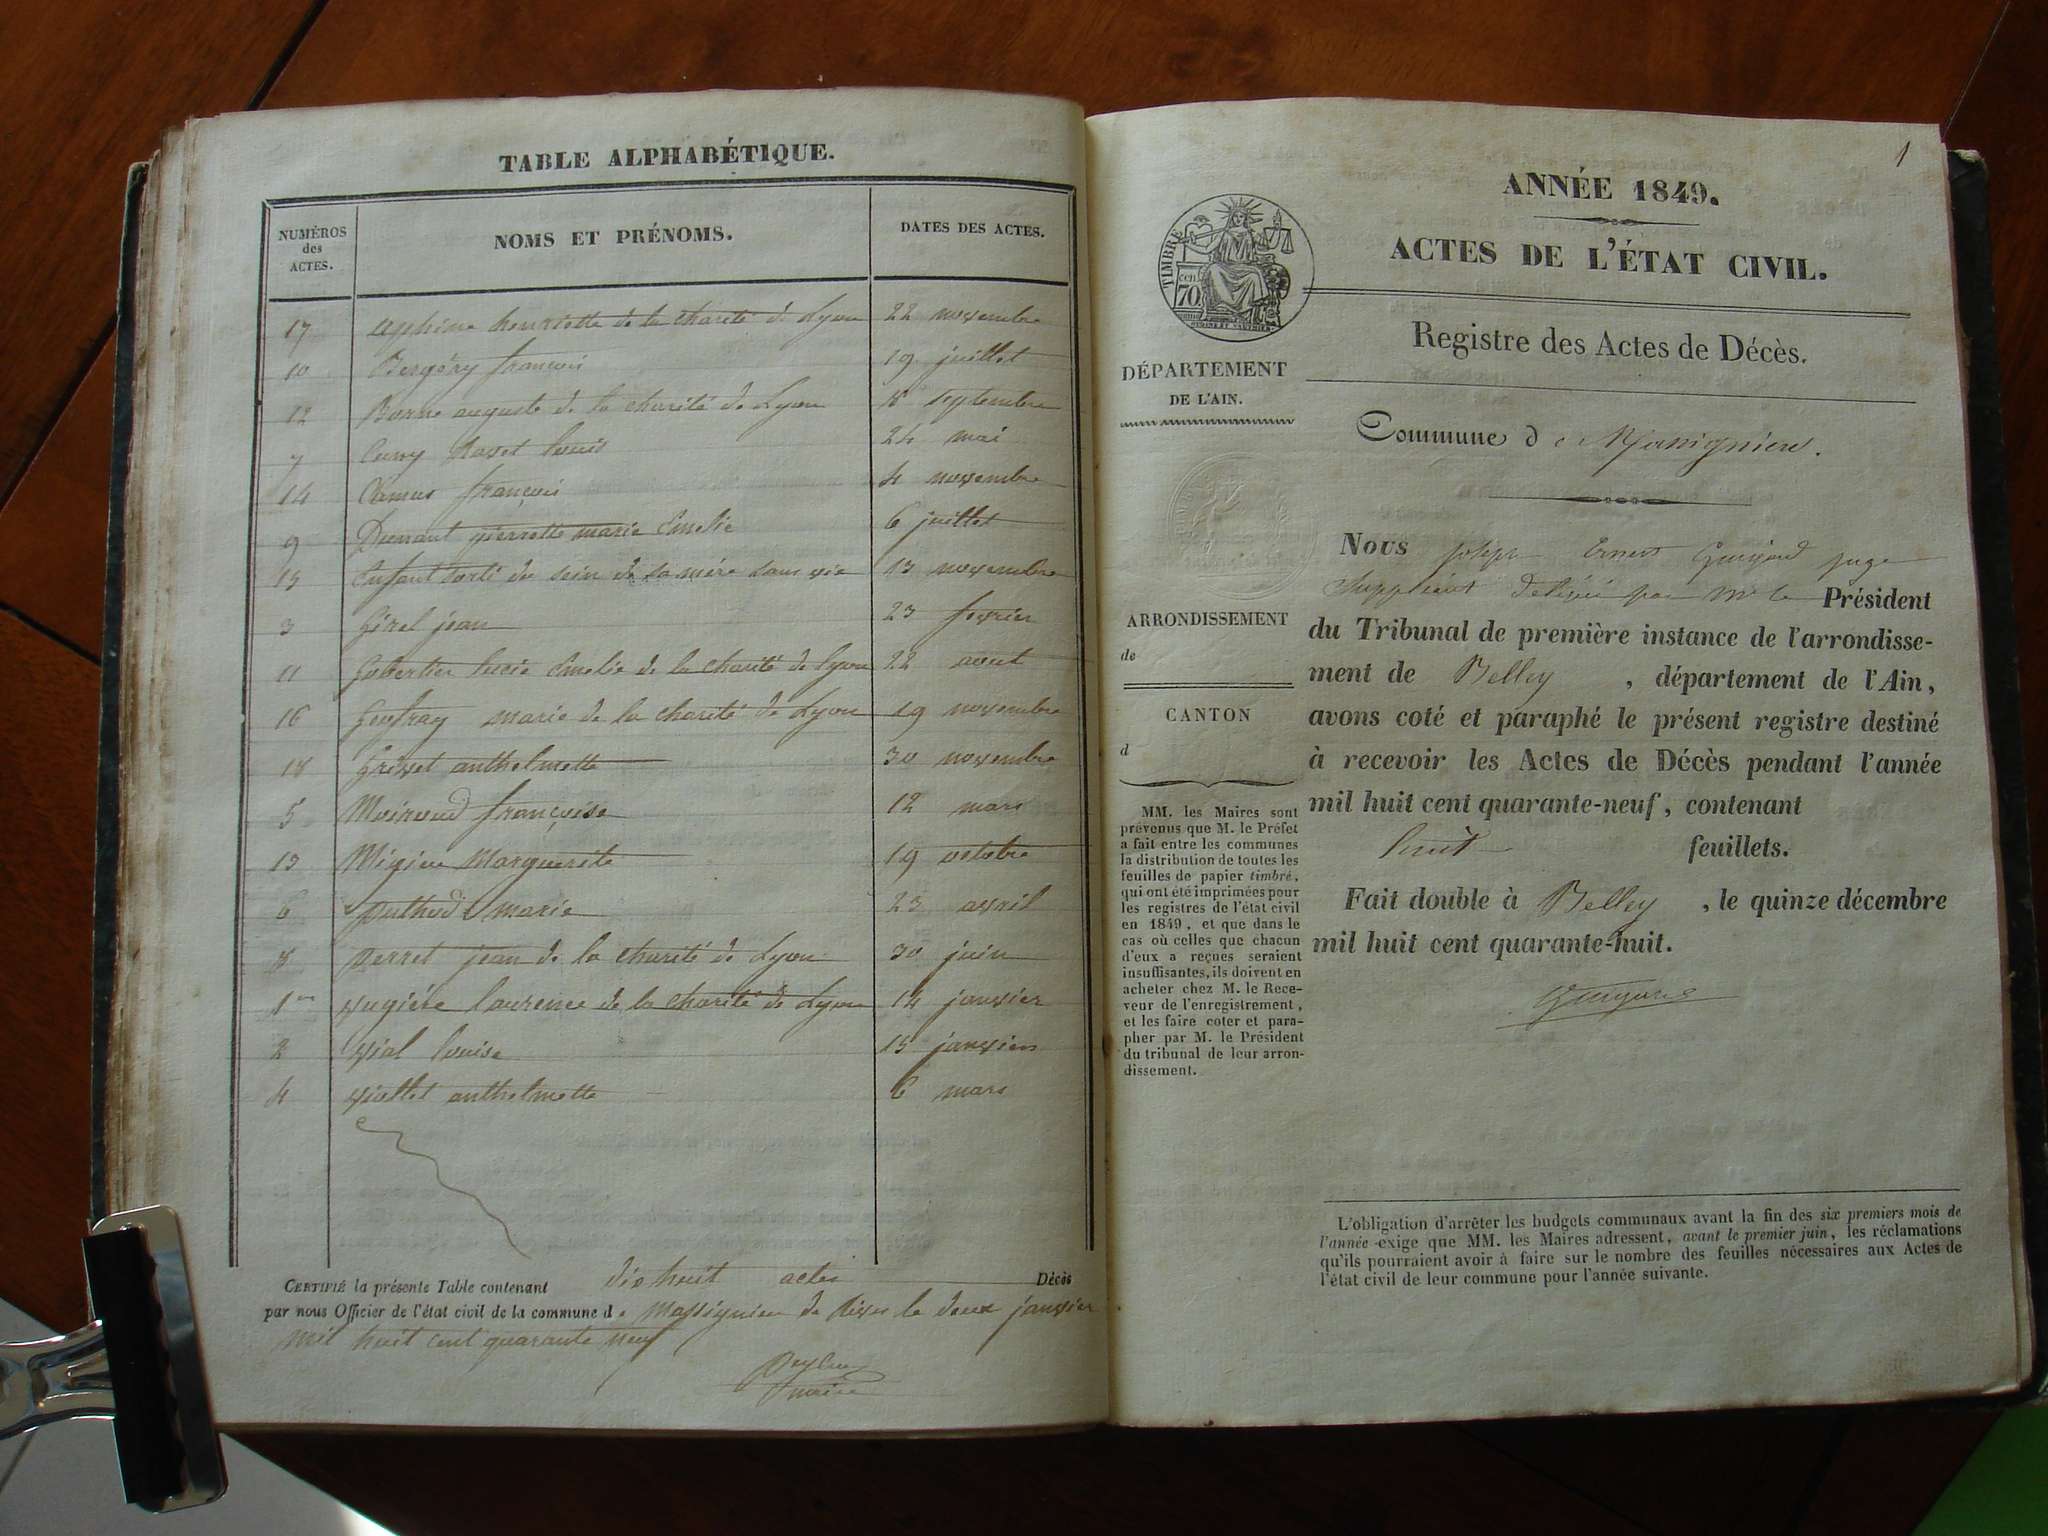 TABLE ALPHABÉTIQUE.
NUMÉROS
des
ACTES.
NOMS ET PRÉNOMS.
DATES DES ACTES.
17 henriette de la charité de Lyon 22 novembre
10 Bergéry françois 19 juillet
12 Borne auguste de la charité de Lyon 18 septembre
7 Cuzy louis 24 mai
14 Camus françois 4 novembre
9 pierrette marie Emelie 6 juillet
15 Enfant sorti du sein de sa mère sans vie 13 novembre
3 Girel jean 23 fevrier
11 Gobertier lucie Emelie de la charité de lyon 22 aout
16 marie de la charité de Lyon 19 novembre
18 anthelmette 30 novembre
5 Moiroud françoise 12 mars
13 Marguerite 19 octobre
6 marie 23 avril
8 perret jean de la charité de Lyon 30 juin
1er laurence de la charité de Lyon 14 janvier
2 vial louise 15 janvier
4 viollet anthelmette 6 mars
CERTIFIÉ la présente Table contenant dix huit actes Décès
par nous Officier de l'état civil de la commune de Massignieu de Rives le deux janvier
mil huit cent quarante neuf
maire
1
ANNÉE 1849.
ACTES DE L'ÉTAT CIVIL.
TIMBRE
70
cen
DÉPARTEMENT
DE L'AIN.
Registre des Actes de Décès.
Commune de Massignieu.
ARRONDISSEMENT
de
CANTON
d
MM. les Maires sont
prévenus que M. le Préfet
a fait entre les communes
la distribution de toutes les
feuilles de papier timbré,
qui ont été imprimées pour
les registres de l'état civil
en 1849, et que dans le
cas où celles que chacun
d'eux a reçues seraient
insuffisantes, ils doivent en
acheter chez M. le Rece-
veur de l'enregistrement,
et les faire coter et para-
pher par M. le Président
du tribunal de leur arron-
dissement.
Nous joseph Ernest juge
Suppléant délégué par Mr le Président
du Tribunal de première instance de l'arrondisse-
ment de Belley, département de l'Ain,
avons coté et paraphé le présent registre destiné
à recevoir les Actes de Décès pendant l'année
mil huit cent quarante-neuf, contenant
huit feuillets.
Fait double à Belley, le quinze décembre
mil huit cent quarante-huit.
L'obligation d'arrêter les budgets communaux avant la fin des six premiers mois de
l'année exige que MM. les Maires adressent, avant le premier juin, les réclamations
qu'ils pourraient avoir à faire sur le nombre des feuilles nécessaires aux Actes de
l'état civil de leur commune pour l'année suivante.